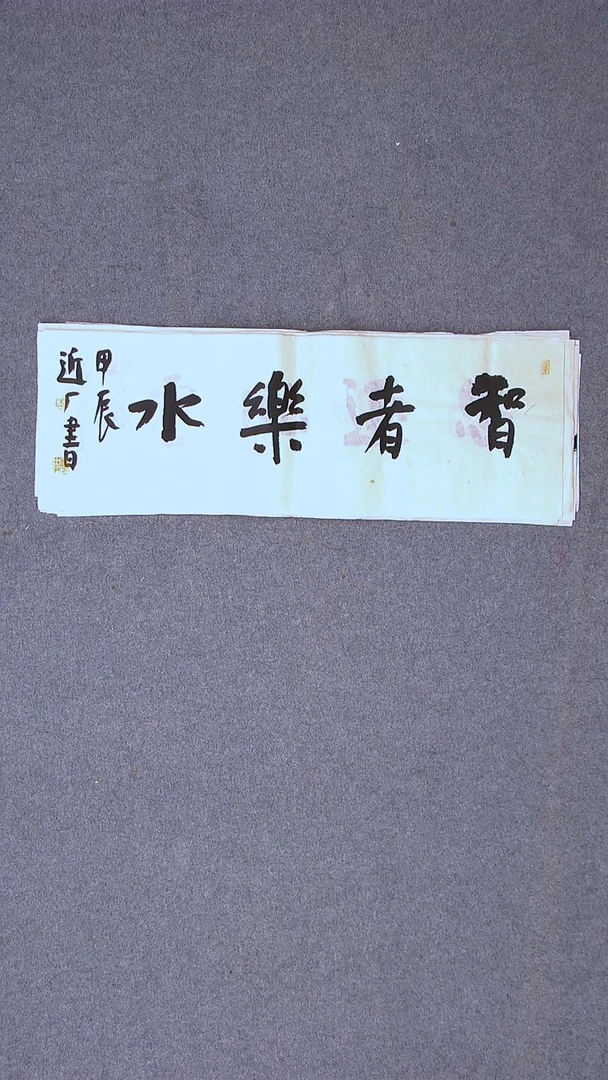 智者樂水
甲辰
近
書